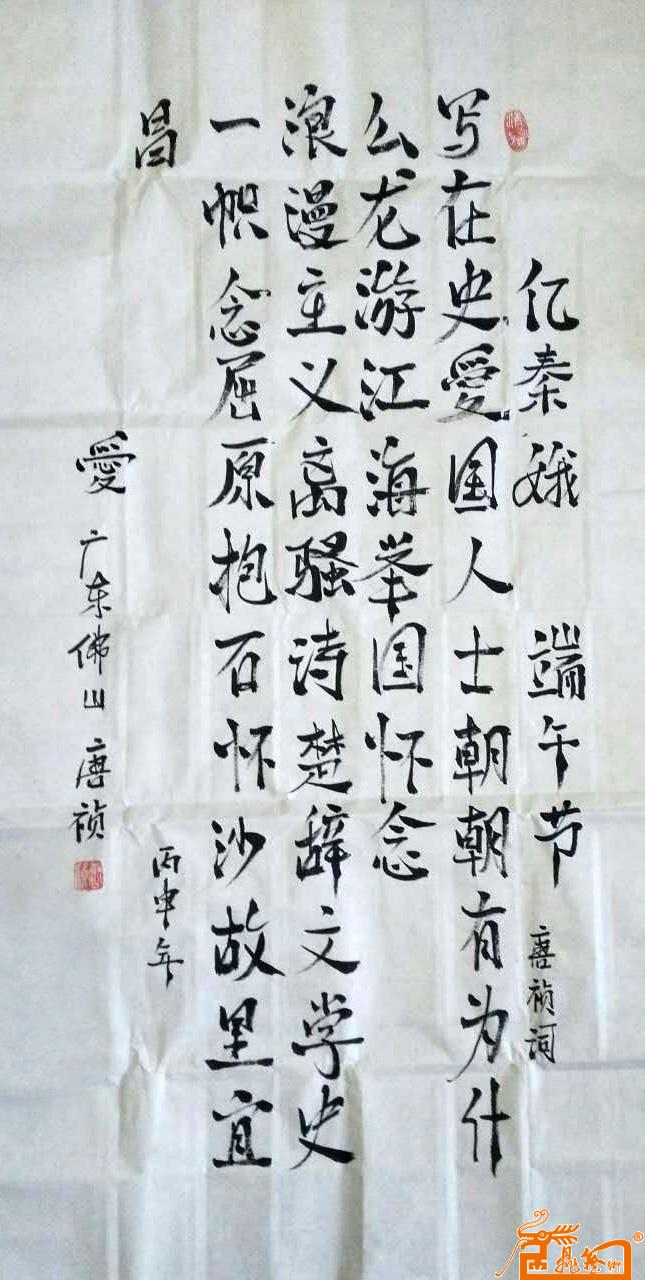 亿秦娥 端午节 唐祯词
写在史爱国人士朝朝有为什
么龙游江海举国怀念
浪漫主义离骚诗楚辞文学史
一帜念屈原抱石怀沙故里宜
昌
丙申年
愛 广东佛山唐祯